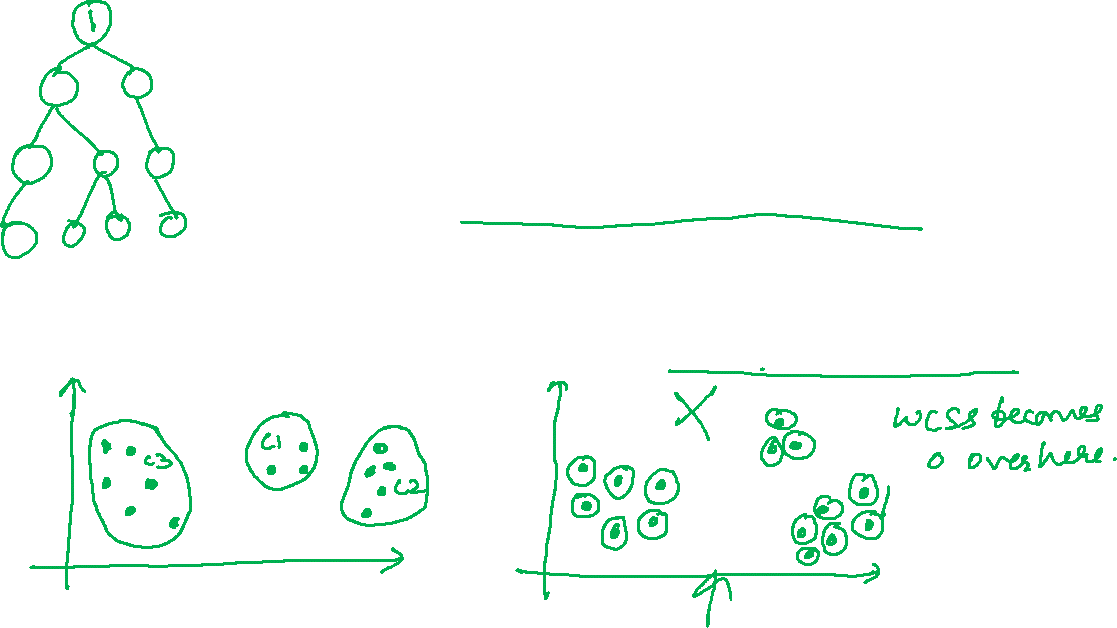 1
C1
C3
C2
X
WCSS becomes
0 over here.